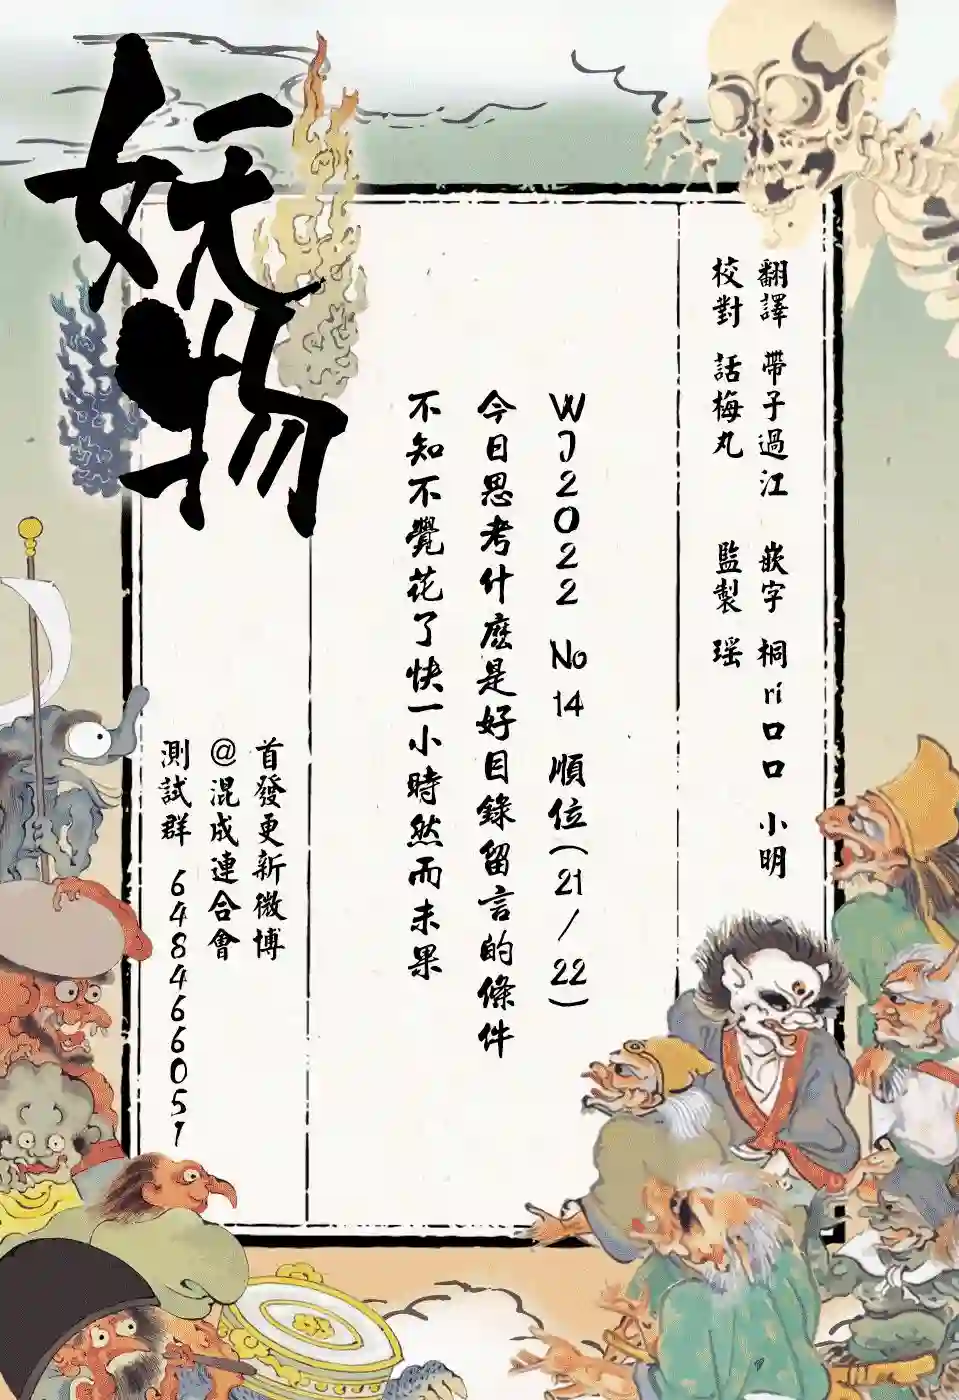 妖物
翻譯 帶子過江 嵌字 桐ri口口 小明
校對 話梅丸 監製 瑶
WJ2022 No 14 順位(21/22)
今日思考什麽是好目錄留言的條件
不知不覺花了快一小時然而未果
首發更新微博
@混成連合會
測試群 648466051